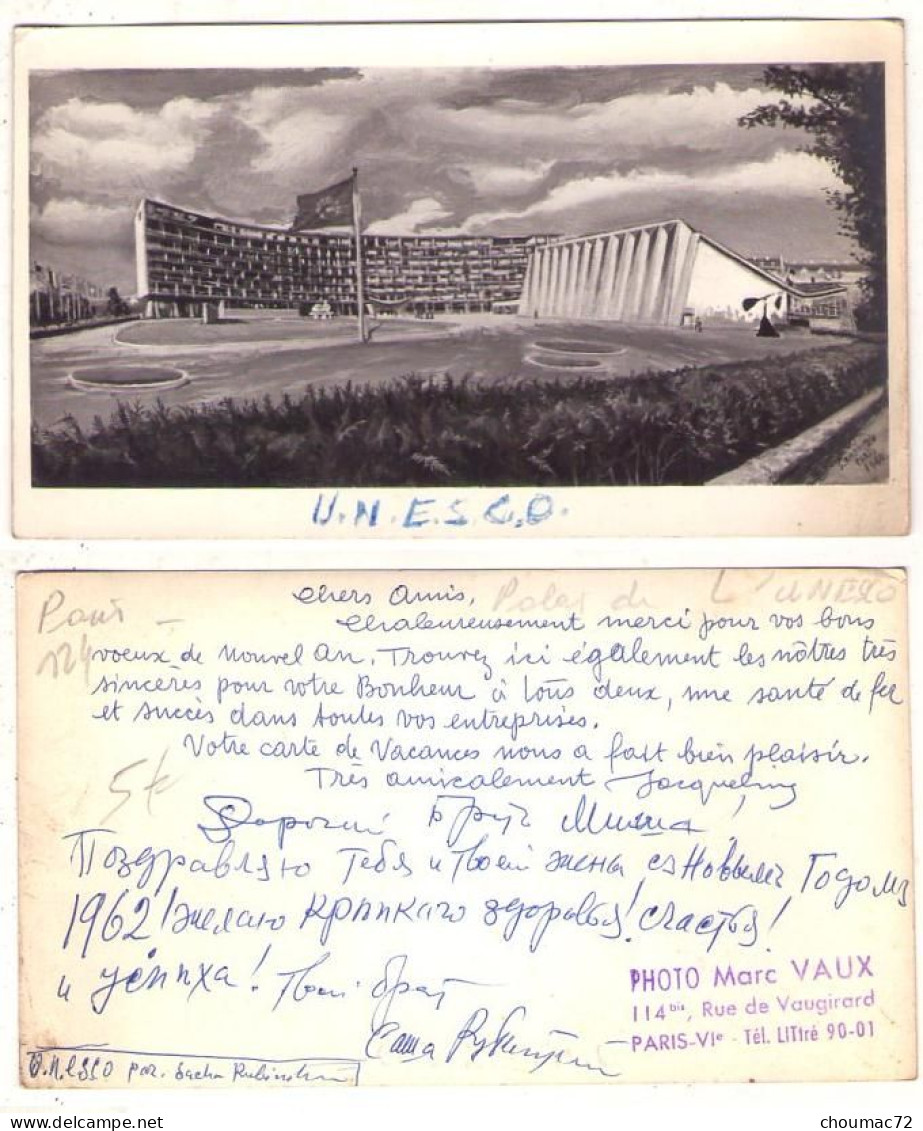 U.N.E.S.C.O.
Paris
Palais de L'UNESCO
124
Chers Amis,
Chaleureusement merci pour vos bons
voeux de Nouvel An. Trouvez ici également les nôtres très
sincères pour votre Bonheur à tous deux, une santé de fer
et succès dans toutes vos entreprises.
Votre carte de Vacances nous a fait bien plaisir.
Très amicalement Jacqueline
5€
Дорогой Друг Миша
Поздравляю тебя и твоей жена съ Новымъ Годомъ
1962! желаю крпкаго здоровья! счастья!
и успха! Твой брат
Саша
PHOTO Marc VAUX
114bis, Rue de Vaugirard
PARIS-VIe - Tél. LITtré 90-01
par. Sacha
delcampe.net
choumac72